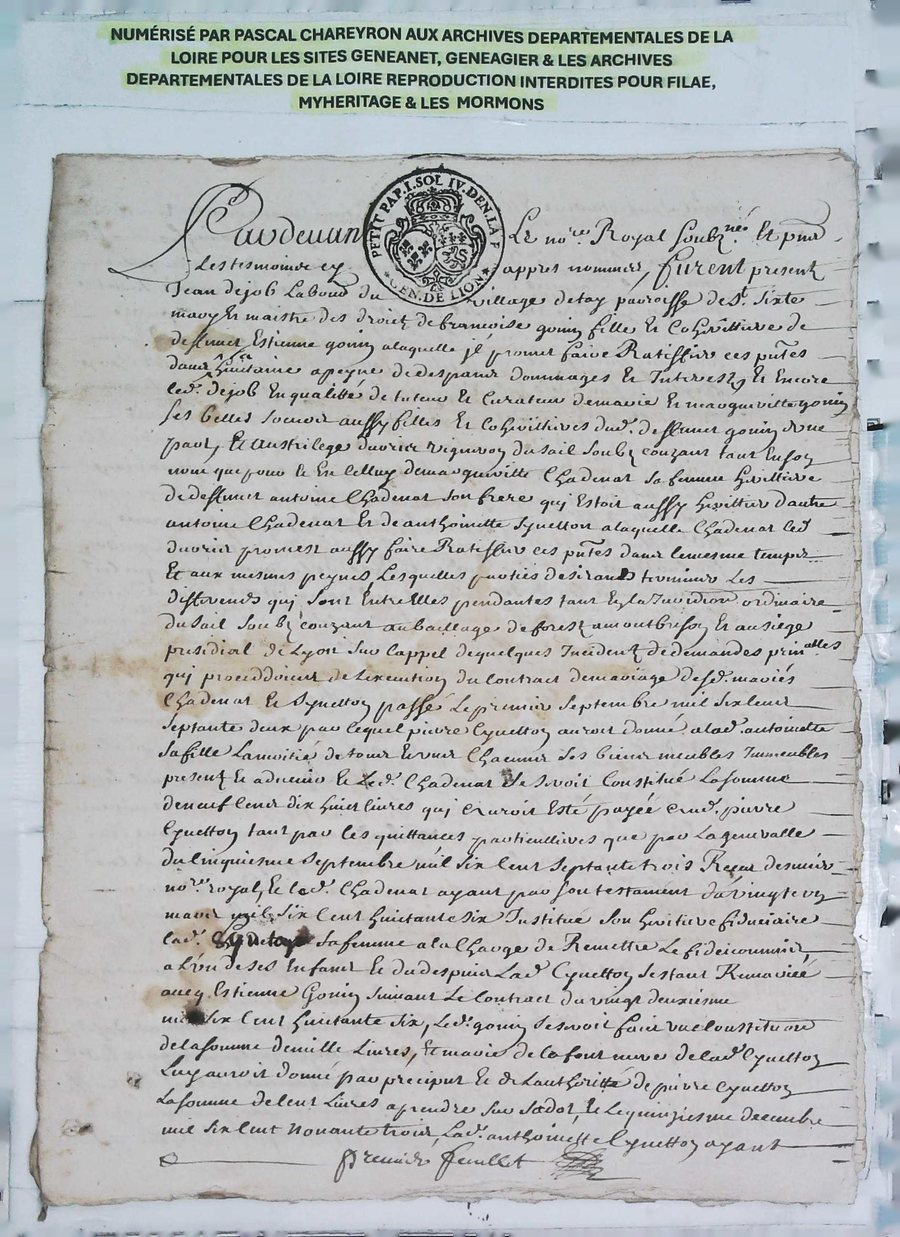 NUMÉRISÉ PAR PASCAL CHAREYRON AUX ARCHIVES DEPARTEMENTALES DE LA
LOIRE POUR LES SITES GENEANET, GENEAGIER & LES ARCHIVES
DEPARTEMENTALES DE LA LOIRE REPRODUCTION INTERDITES POUR FILAE,
MYHERITAGE & LES MORMONS
PETIT PAP. I. SOL IV. DEN. LA F
GEN. DE LION
Pardevant Le nore Royal soubzné Et pnt
Les tesmoins cy appres nommes, furent present
Jean dejob Labour du village de paroisse de St Sixte
mary Et maistre des droitz de francoise gonin fille Et Cohérittiere de
deffunct Estienne gonin a laquelle il promet faire Ratiffier ces pntes
dans huitaine a peyne de despans dommages Et Interestz, Et Encore
led. dejob En qualitté de tuteur Et Curateur de marie Et margueritte gonin
ses belles soeurs aussy filles Et Cohérittieres dud. deffunct gonin d'une
part, Et Austrilege duvrier vigneron du sail Soubz couzant tant En son
nom que pour Et En Celluy de margueritte Chadenat sa femme hérittiere
de deffunct antoine Chadenat son frere qui Estoit aussy hérittier d'autre
antoine Chadenat Et de anthoinette Cyvetton a laquelle Chadenat led.
duvrier promet aussy faire Ratiffier ces pntes dans le mesme temps
Et aux mesmes peynes, Lesquelles parties desirants terminer Les
differends qui sont Entrelles pendantes tant En la Juridion ordinaire
du sail Soubz couzant au bailliage de forest a montbrison Et au siege
presidial de Lyon sur l'appel de quelques Incidentz de demandes prinalles
qui proceddoient de L'execution du Contract de mariage desd. mariés
Chadenat Et Cyvetton passé Le premier Septembre mil six cent
septante deux par lequel pierre Cyvetton auroit donné a lad. antoinette
sa fille La moitié de tous Et uns Chacuns ses biens meubles Immeubles
present Et advenir Et Led. Chadenat se seroit Constitué La somme
de neuf Cent dix huit livres qui auroit Esté payée aud. pierre
Cyvetton tant par les quittances particullieres que par La generalle
du Cinquiesme Septembre mil six Cent Septante trois Reçue
nore royal, Et led. Chadenat ayant par son testament du vingt
mars mil six Cent huitante six Institué son héritiere fiduciaire
lad. Cyvetton sa femme a la Charge de Remettre Le fideicommis
a L'un de ses Enfans Et du despuis Lad. Cyvetton s'estant Remariée
avec Estienne Gonin suivant Le Contract du vingt deuxiesme
six Cent huitante six, led. gonin se seroit fait une Constitution
de la somme de mille Livres, Et marie de la font mere de lad. Cyvetton
Luy auroit donné par preciput Et de L'authoritté de pierre Cyvetton
La somme de Cent Livres a prendre sur sa dot, Et Le quinziesme decembre
mil six Cent Nonante trois, Lad. anthoinette Cyvetton ayant
premier feuillet